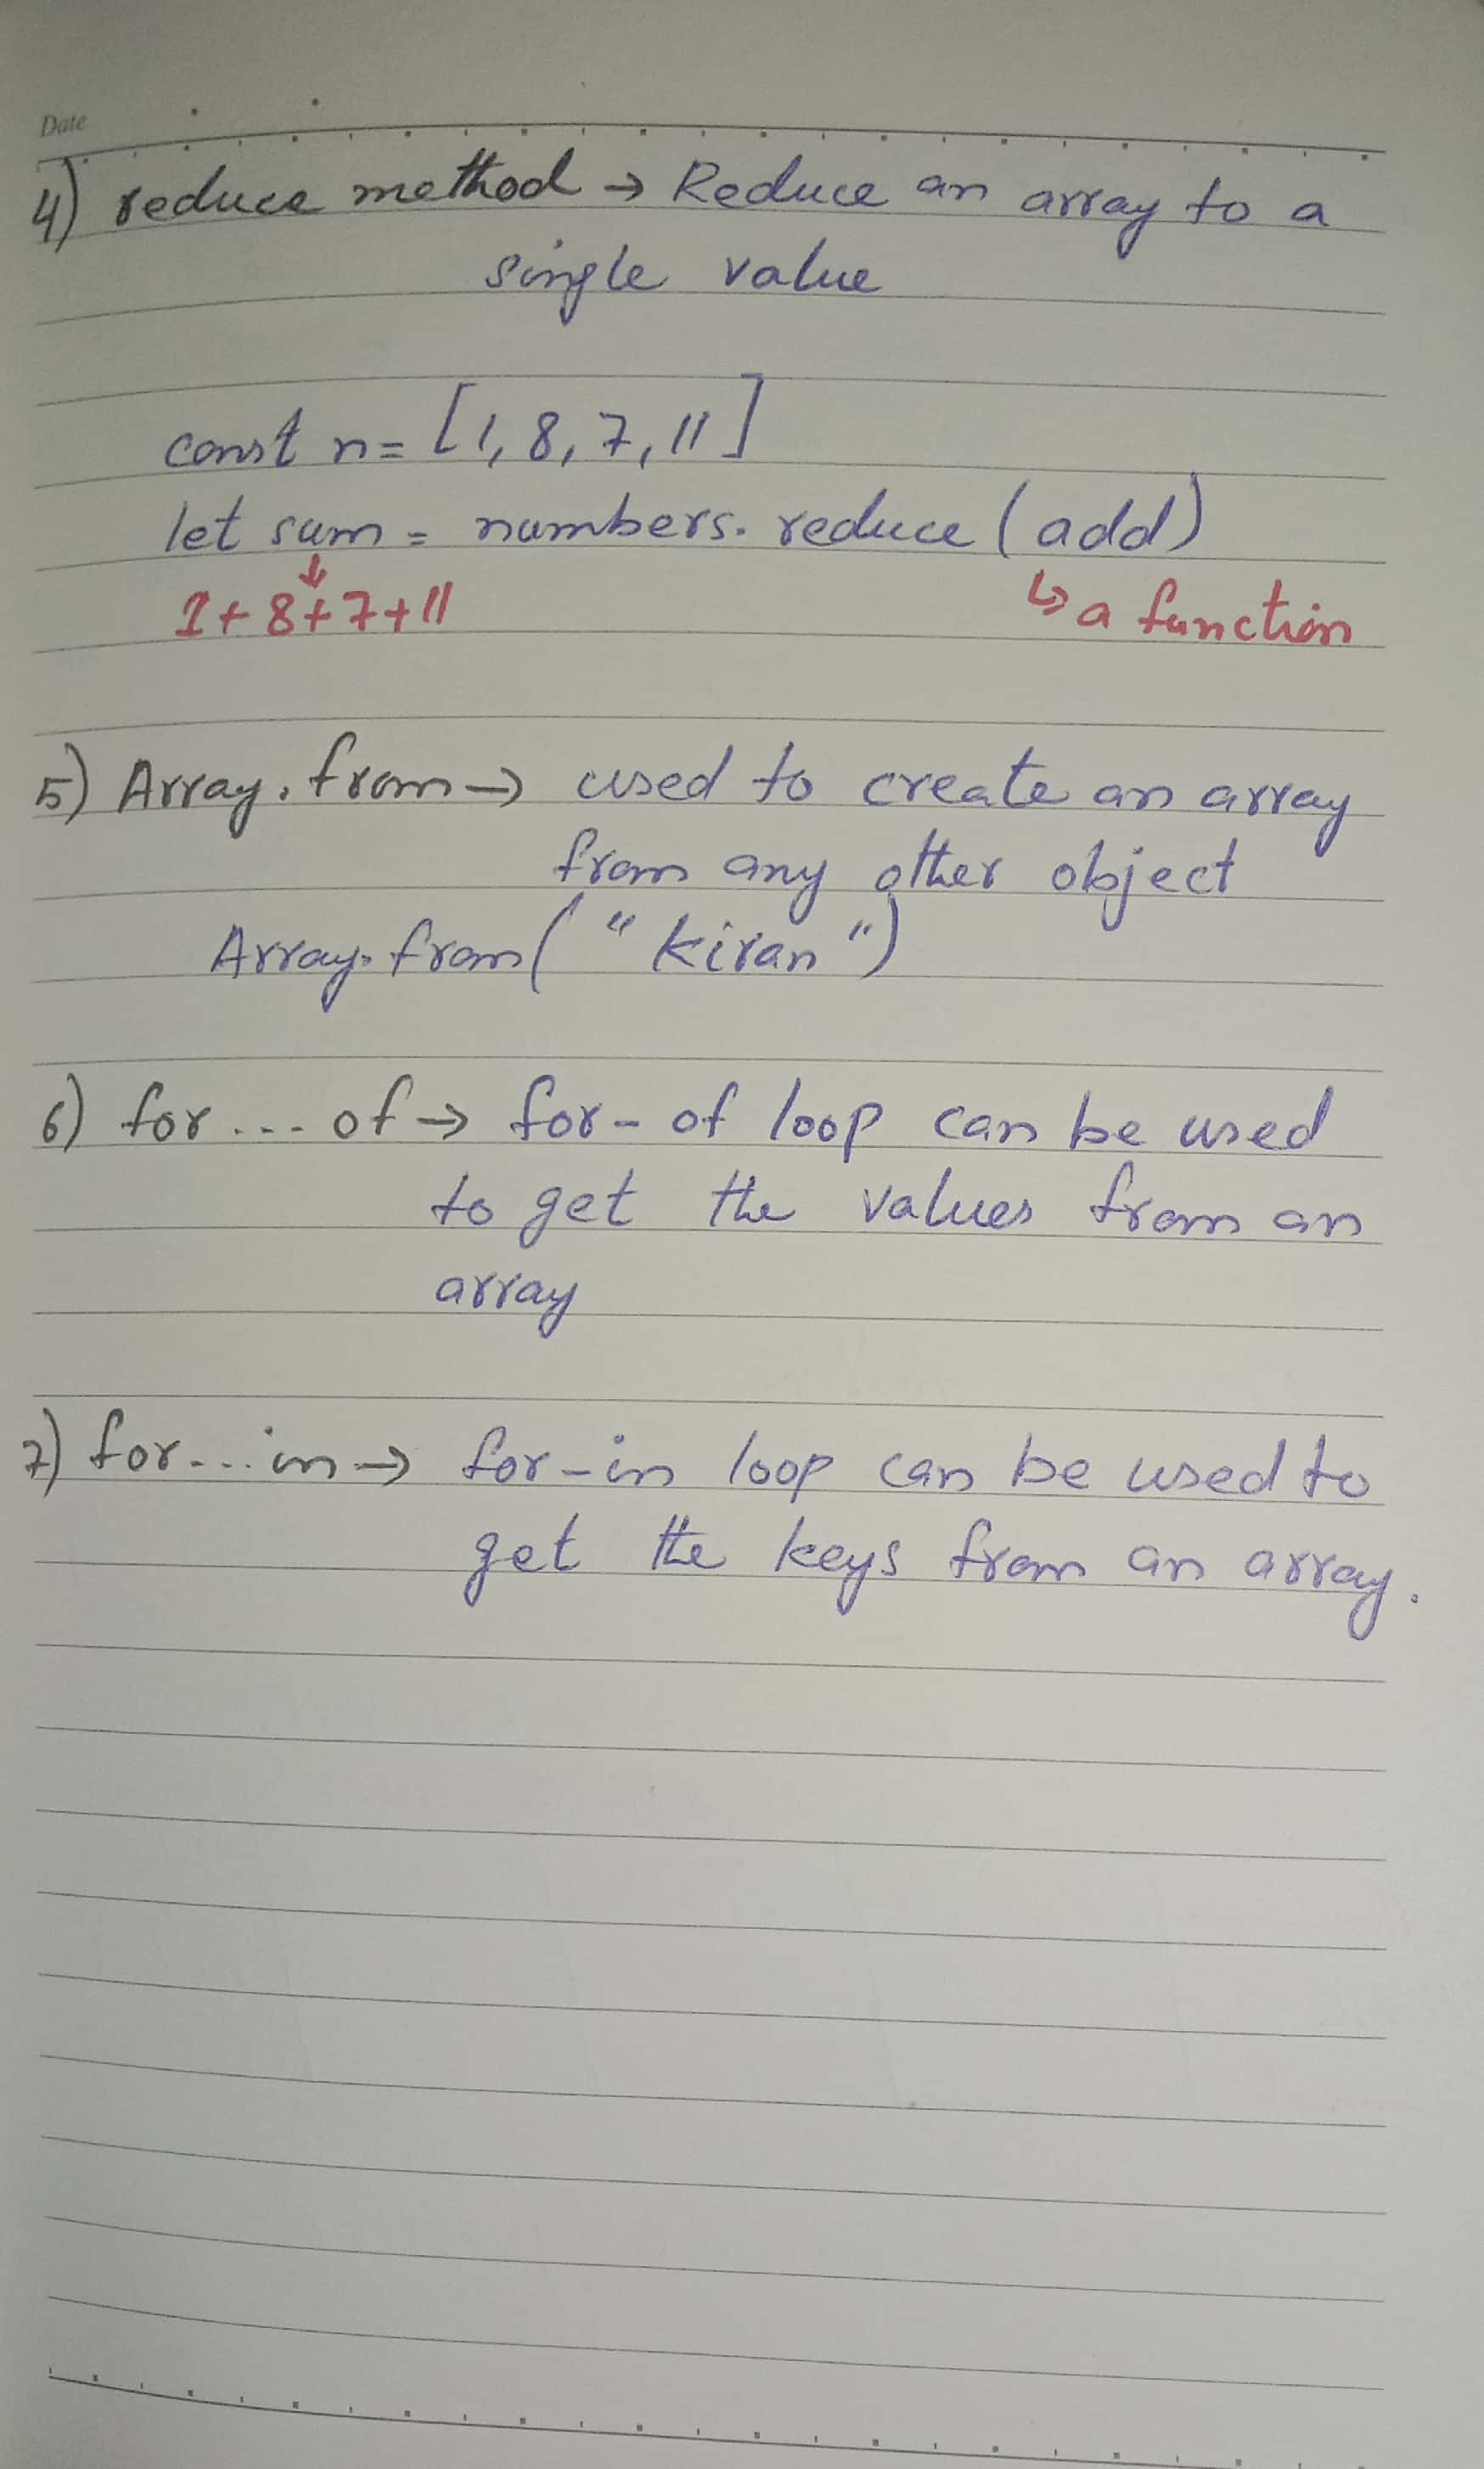 Date
4) reduce method → Reduce an array to a
single value
const n = [1, 8, 7, 11]
let sum = numbers. reduce (add)
↓
1 + 8 + 7 + 11 ↳ a function
5) Array. from → used to create an array
from any other object
Array. from ( " kiran ")
6) for .... of → for - of loop can be used
to get the values from an
array
7) for ... in → for - in loop can be used to
get the keys from an array.